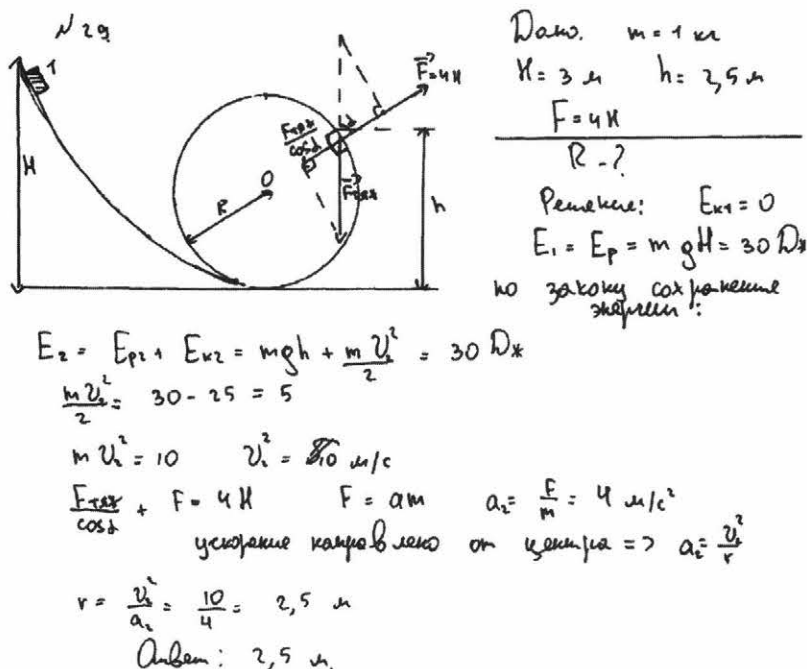 N 29
1
H
R
O
F=4H
Fтяж/cosα
α
Fтяж
h
Дано. m = 1 кг
H = 3 м h = 2,5 м
F = 4H
R - ?
Решение: Eк1 = 0
E₁ = Eр = m g H = 30 Дж
по закону сохранение
энергии :
E₂ = Eр2 + Eк2 = mgh + mV₂²/2 = 30 Дж
mV₂²/2 = 30 - 25 = 5
m V₂² = 10 V₂² = 10 м/с
Fтяж/cosα + F = 4H F = am a₂ = F/m = 4 м/с²
ускорение направлено от центра => a₂ = V₂²/r
r = V₂²/a₂ = 10/4 = 2,5 м
Ответ: 2,5 м.